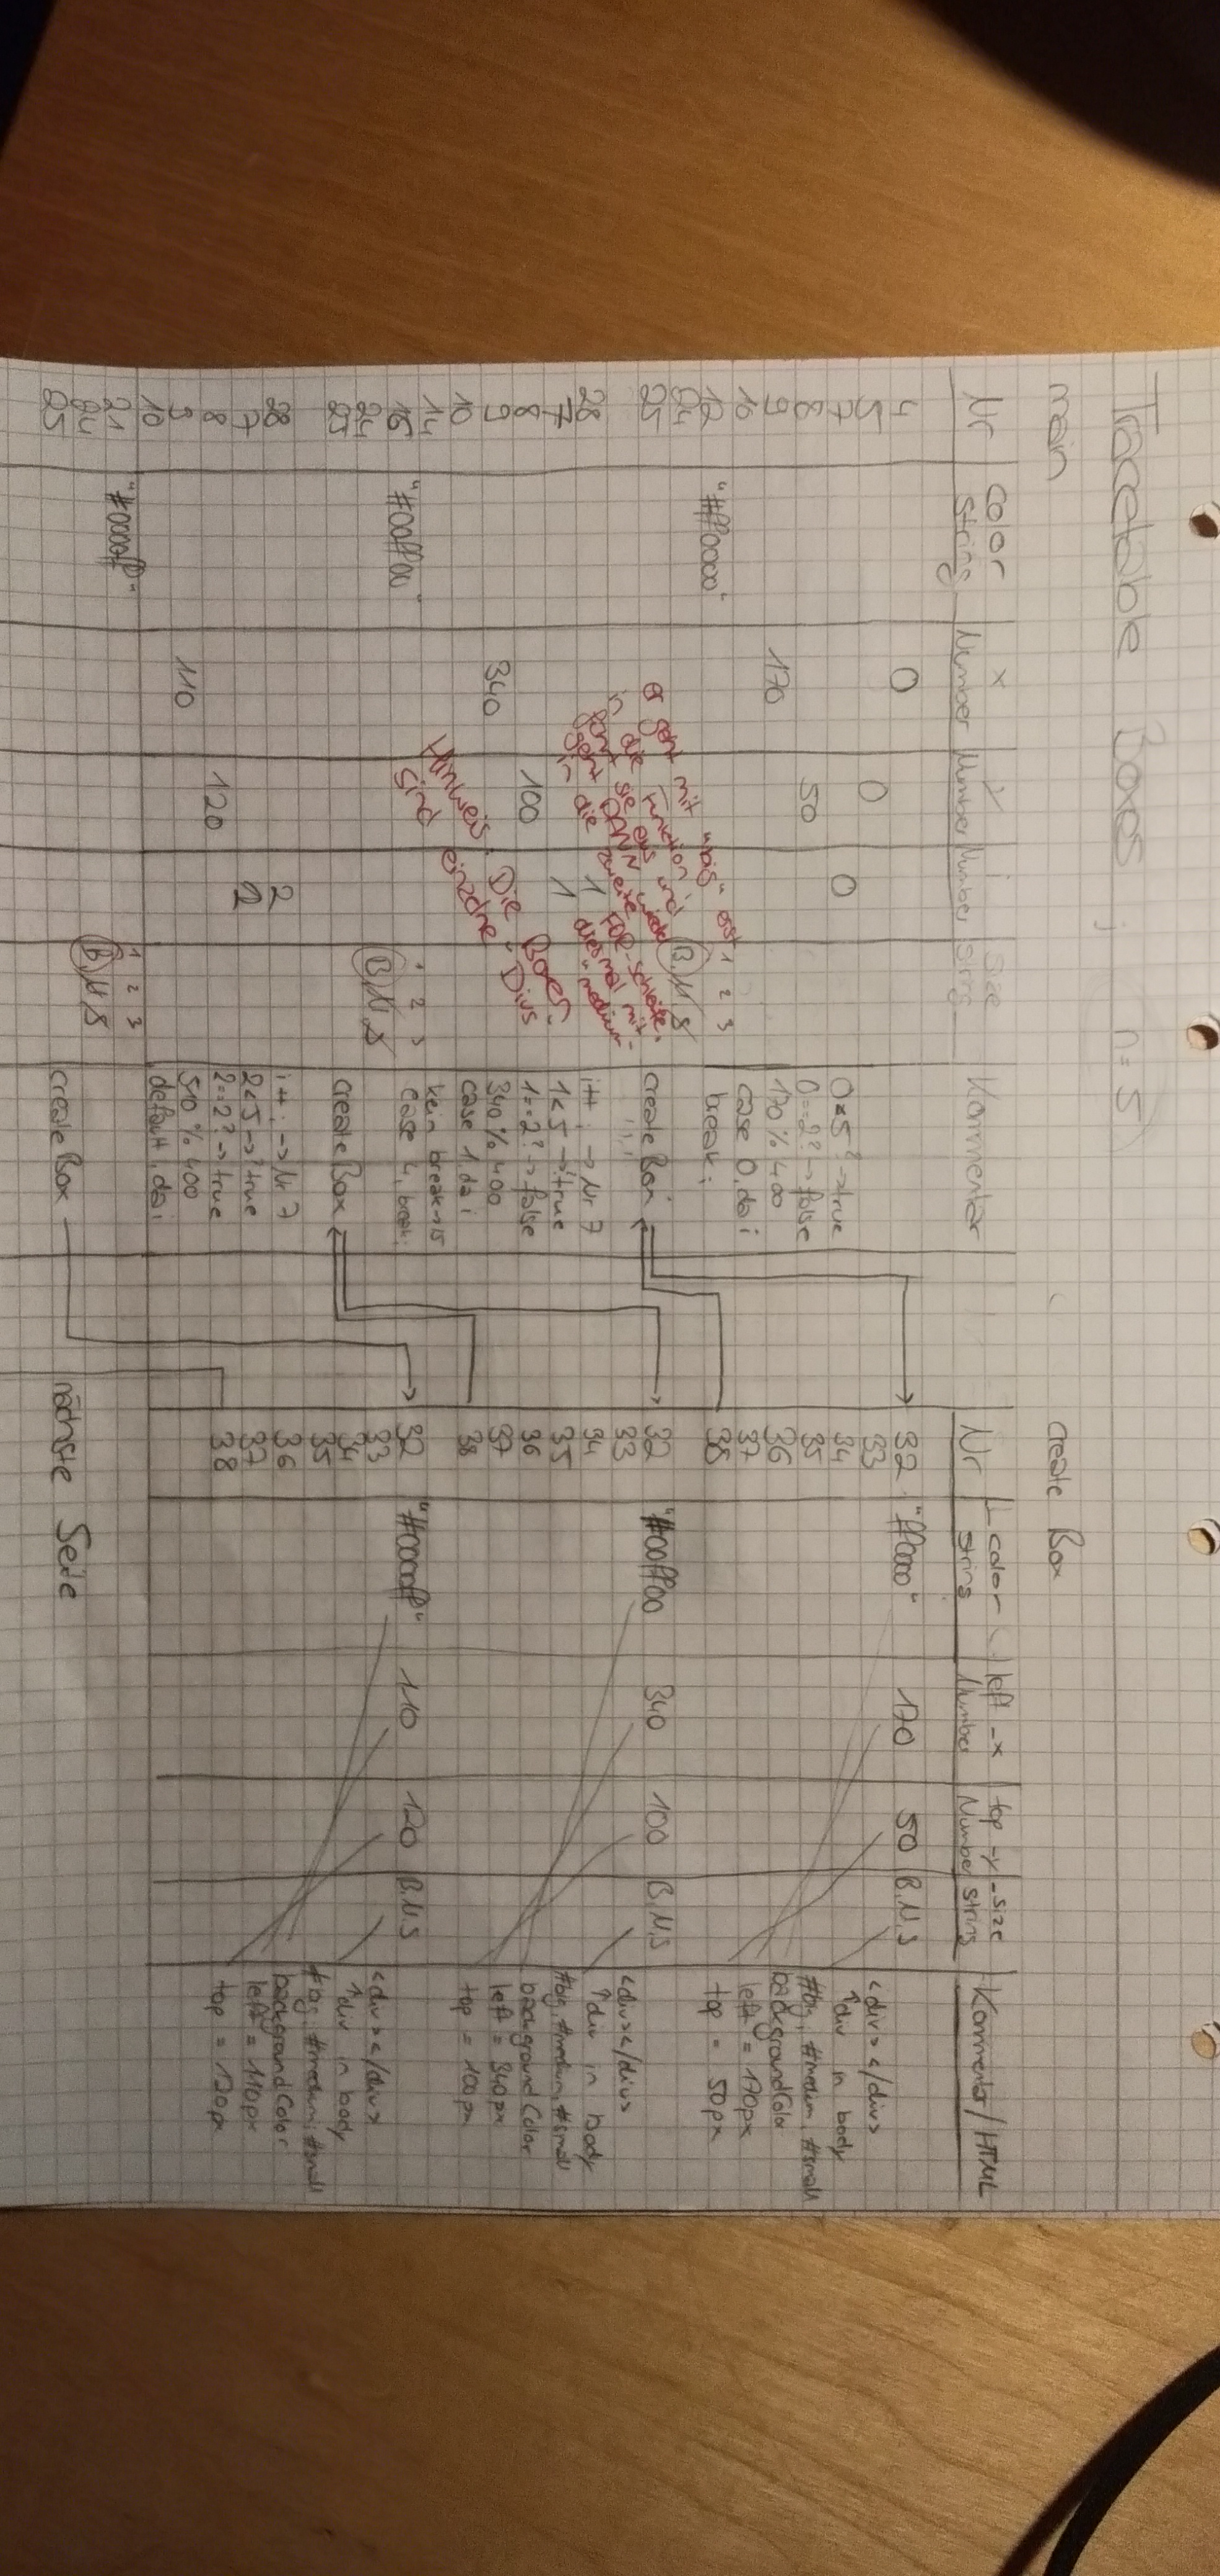 Tracetable Boxes ; n = 5
main
create Box
Nr color string x Number y Number i Number size string Kommentar
Nr _color string left _x Number top _y Number _size string Kommentar/HTML
4 0
5 0
7 0 0<5? → true
8 50 0==2? → false
9 170 170 % 400
10 case 0, da i
12 "#ff0000" break;
24 1 2 3 B, M, S
25 createBox
28 1 i++; → Nr 7
7 1 1<5 → true
8 100 1==2? → false
9 340 340 % 400
10 case 1, da i
14 kein break → 15
16 "#00ff00" case 4, break;
24 1 2 3 B, M, S
25 createBox
28 2 i++; → Nr 7
7 2 2<5 → true
8 120 2==2? → true
9 110 510 % 400
10 default, da i
21 "#0000ff"
24 1 2 3 B, M, S
25 createBox
er geht mit "big" erst
in die Funktion
führt sie aus und
geht DANN wieder
in die zweite FOR-Schleife,
diesmal mit
"medium"
Hinweis: Die Boxen
sind einzelne Divs
32 "ff0000" 170 50 B.M.S
33 <div></div>
34 ↑div in body
35 #big, #medium, #small
36 backgroundColor
37 left = 170px
38 top = 50px
32 "#00ff00 340 100 B.M.S
33 <div></div>
34 ↑div in body
35 #big, #medium, #small
36 backgroundColor
37 left = 340px
38 top = 100px
32 "#0000ff" 110 120 B.M.S
33 <div></div>
34 ↑div in body
35 #big, #medium, #small
36 backgroundColor
37 left = 110px
38 top = 120px
nächste Seite